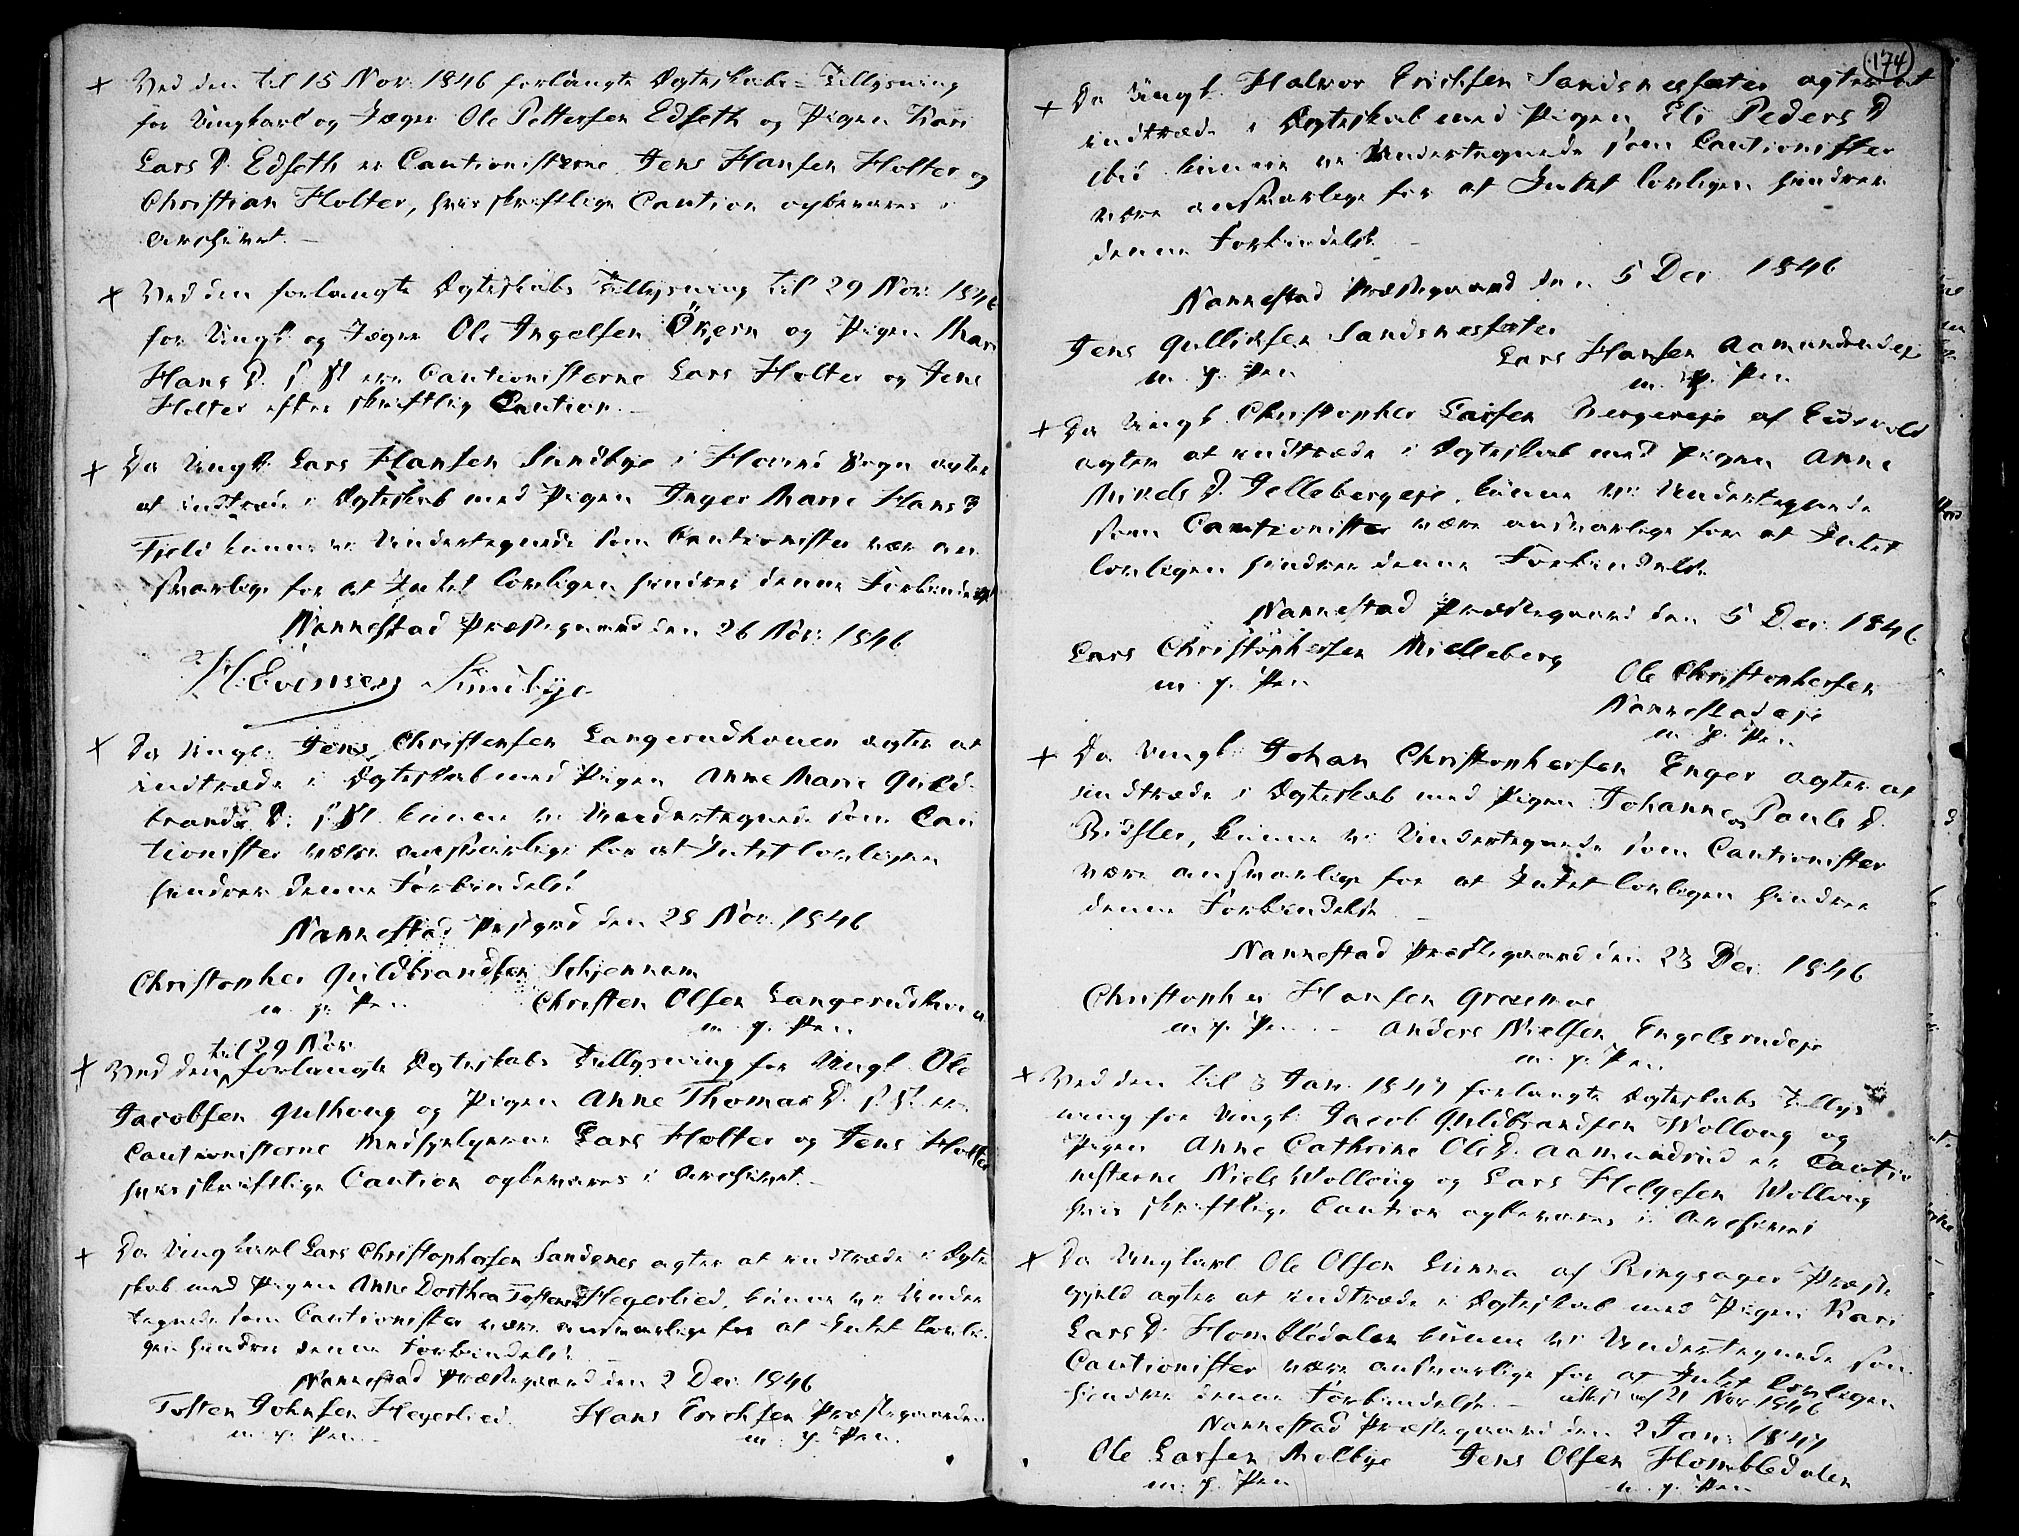 + Ved den til 15 Nov: 1846 forlangte Ægteskabs-Tillysning
for Ungkarl og Jæger Ole Pettersen Edseth og Pigen Kari
Lars D. Edseth er Cautionisterne Jens Hansen Holter og
Christian Holter, hvis skriftlige Caution opbevares i
Archivet. –
+ Ved den forlangte Ægteskabs Tillysning til 29 Nov: 1846
for Ungk: og Jæger Ole Ingelsen Økern og Pigen Mari
Hans D. s. St. ere Cautionisterne Lars Holter og Jens
Holter efter skriftlig Caution. –
+ Da Ungk: Lars Hansen Sundbye i Hovind Sogn agter
at indtræde i Ægteskab med Pigen Inger Marie Hans D
Fjeld kunne vi Undertegnede som Cautionister være an
svarlige for at Intet lovligen hindrer denne Forbindelse
Nannestad Præstegaard den 26 Nov: 1846
H. Evensen Sundbye
+ Da Ungk: Jens Christensen Langerudhouen agter at
indtræde i Ægteskab med Pigen Anne Marie Guld
brands D. s. St. kunne vi Undertegnede som Cau
tionister være ansvarlige for at Intet lovligen
hindrer denne Forbindelse
Nannestad Pstgrd den 28 Nov. 1846
Christopher Guldbrandsen Schjennem
m. p. Pen
Christen Olsen Langerudhouen
m. p. Pen
til 29 Nov
+ Ved den forlangte Ægteskabs Tillysning for Ungk. Ole
Jacobsen Gulhoug og Pigen Anne Thomas D. s. St. ere
Cautionisterne Medhjelperne Lars Holter og Jens Holter
hvis skriftlige Caution opbevares i Archivet. –
+ Da Ungkarl Lars Christophersen Sandsnes agter at indtræde i Ægte
skab med Pigen Anne Dorthea Tostens D Hegerlied, kunne vi Under
tegnede som Cautionister være ansvarlige for at Intet lovli
gen hindrer denne Forbindelse
Nannestad Præstegaard den 2 Dec: 1846
Tosten Johnsen Hegerlied
m. p. Pen.
Hans Erichsen Præstegaarden
m. p. Pen.
174
+ Da Ungk. Halvor Erichsen Sandsnesseter agter at
indtræde i Ægteskab med Pigen Eli Peders D
ibid kunne vi Undertegnede som Cautionister
være ansvarlige for at Intet lovligen hindrer
denne Forbindelse –
Nannestad Præstegaard den 5 Dec 1846
Jens Gulliksen Sandsnesseter
m. p. Pen
Lars Hansen Aamundrudeje
m. p. Pen
+ Da Ungk. Christopher Larsen Bergereje af Eidsvold
agter at indtræde i Ægteskab med Pigen Anne
Mikels D. Jellebergeje, kunne vi Undertegnede
som Cautionister være ansvarlige for at Intet
lovligen hindrer denne Forbindelse
Nannestad Præstegaard den 5 Dec: 1846
Lars Christophersen Mielleberg
m. p. Pen
Ole Christophersen
Nannestadeje
m. p. Pen
+ Da Ungk: Johan Christophersen Enger agter at
indtræde i Ægteskab med Pigen Johanne Pauls D.
kunne vi Undertegnede som Cautionister
være ansvarlige for at Intet lovligen hindrer
denne Forbindelse –
Nannestad Præstegaard den 23 Dec: 1846
Christopher Hansen Græsmoe
m. p. Pen
Anders Nielsen Engelsrudeje
m. p. Pen.
+ Ved den til 3 Jan: 1847 forlangte Ægteskabs Tillys
ning for Ungk: Jacob Guldbrandsen Wolloug og
Pigen Anne Cathrine Ole D. Aamundrud er Cautio
nisterne Niels Wolloug og Lars Helgesen Wolloug
hvis skriftlige Caution opbevares i Archivet
+ Da Ungkarl Ole Olsen Lunna af Ringsager Præste
gjeld agter at indtræde i Ægteskab med Pigen Kari
Lars D. Hombledalen kunne vi Undertegnede som
Cautionister være ansvarlige for at Intet lovligen
hindrer denne Forbindelse. – attest af 21 Nov 1846
Nannestad Præstegaard den 2 Jan: 1847
Ole Larsen Melbye
m. p. Pen
Jens Olsen Hombledalen
m. p. Pen